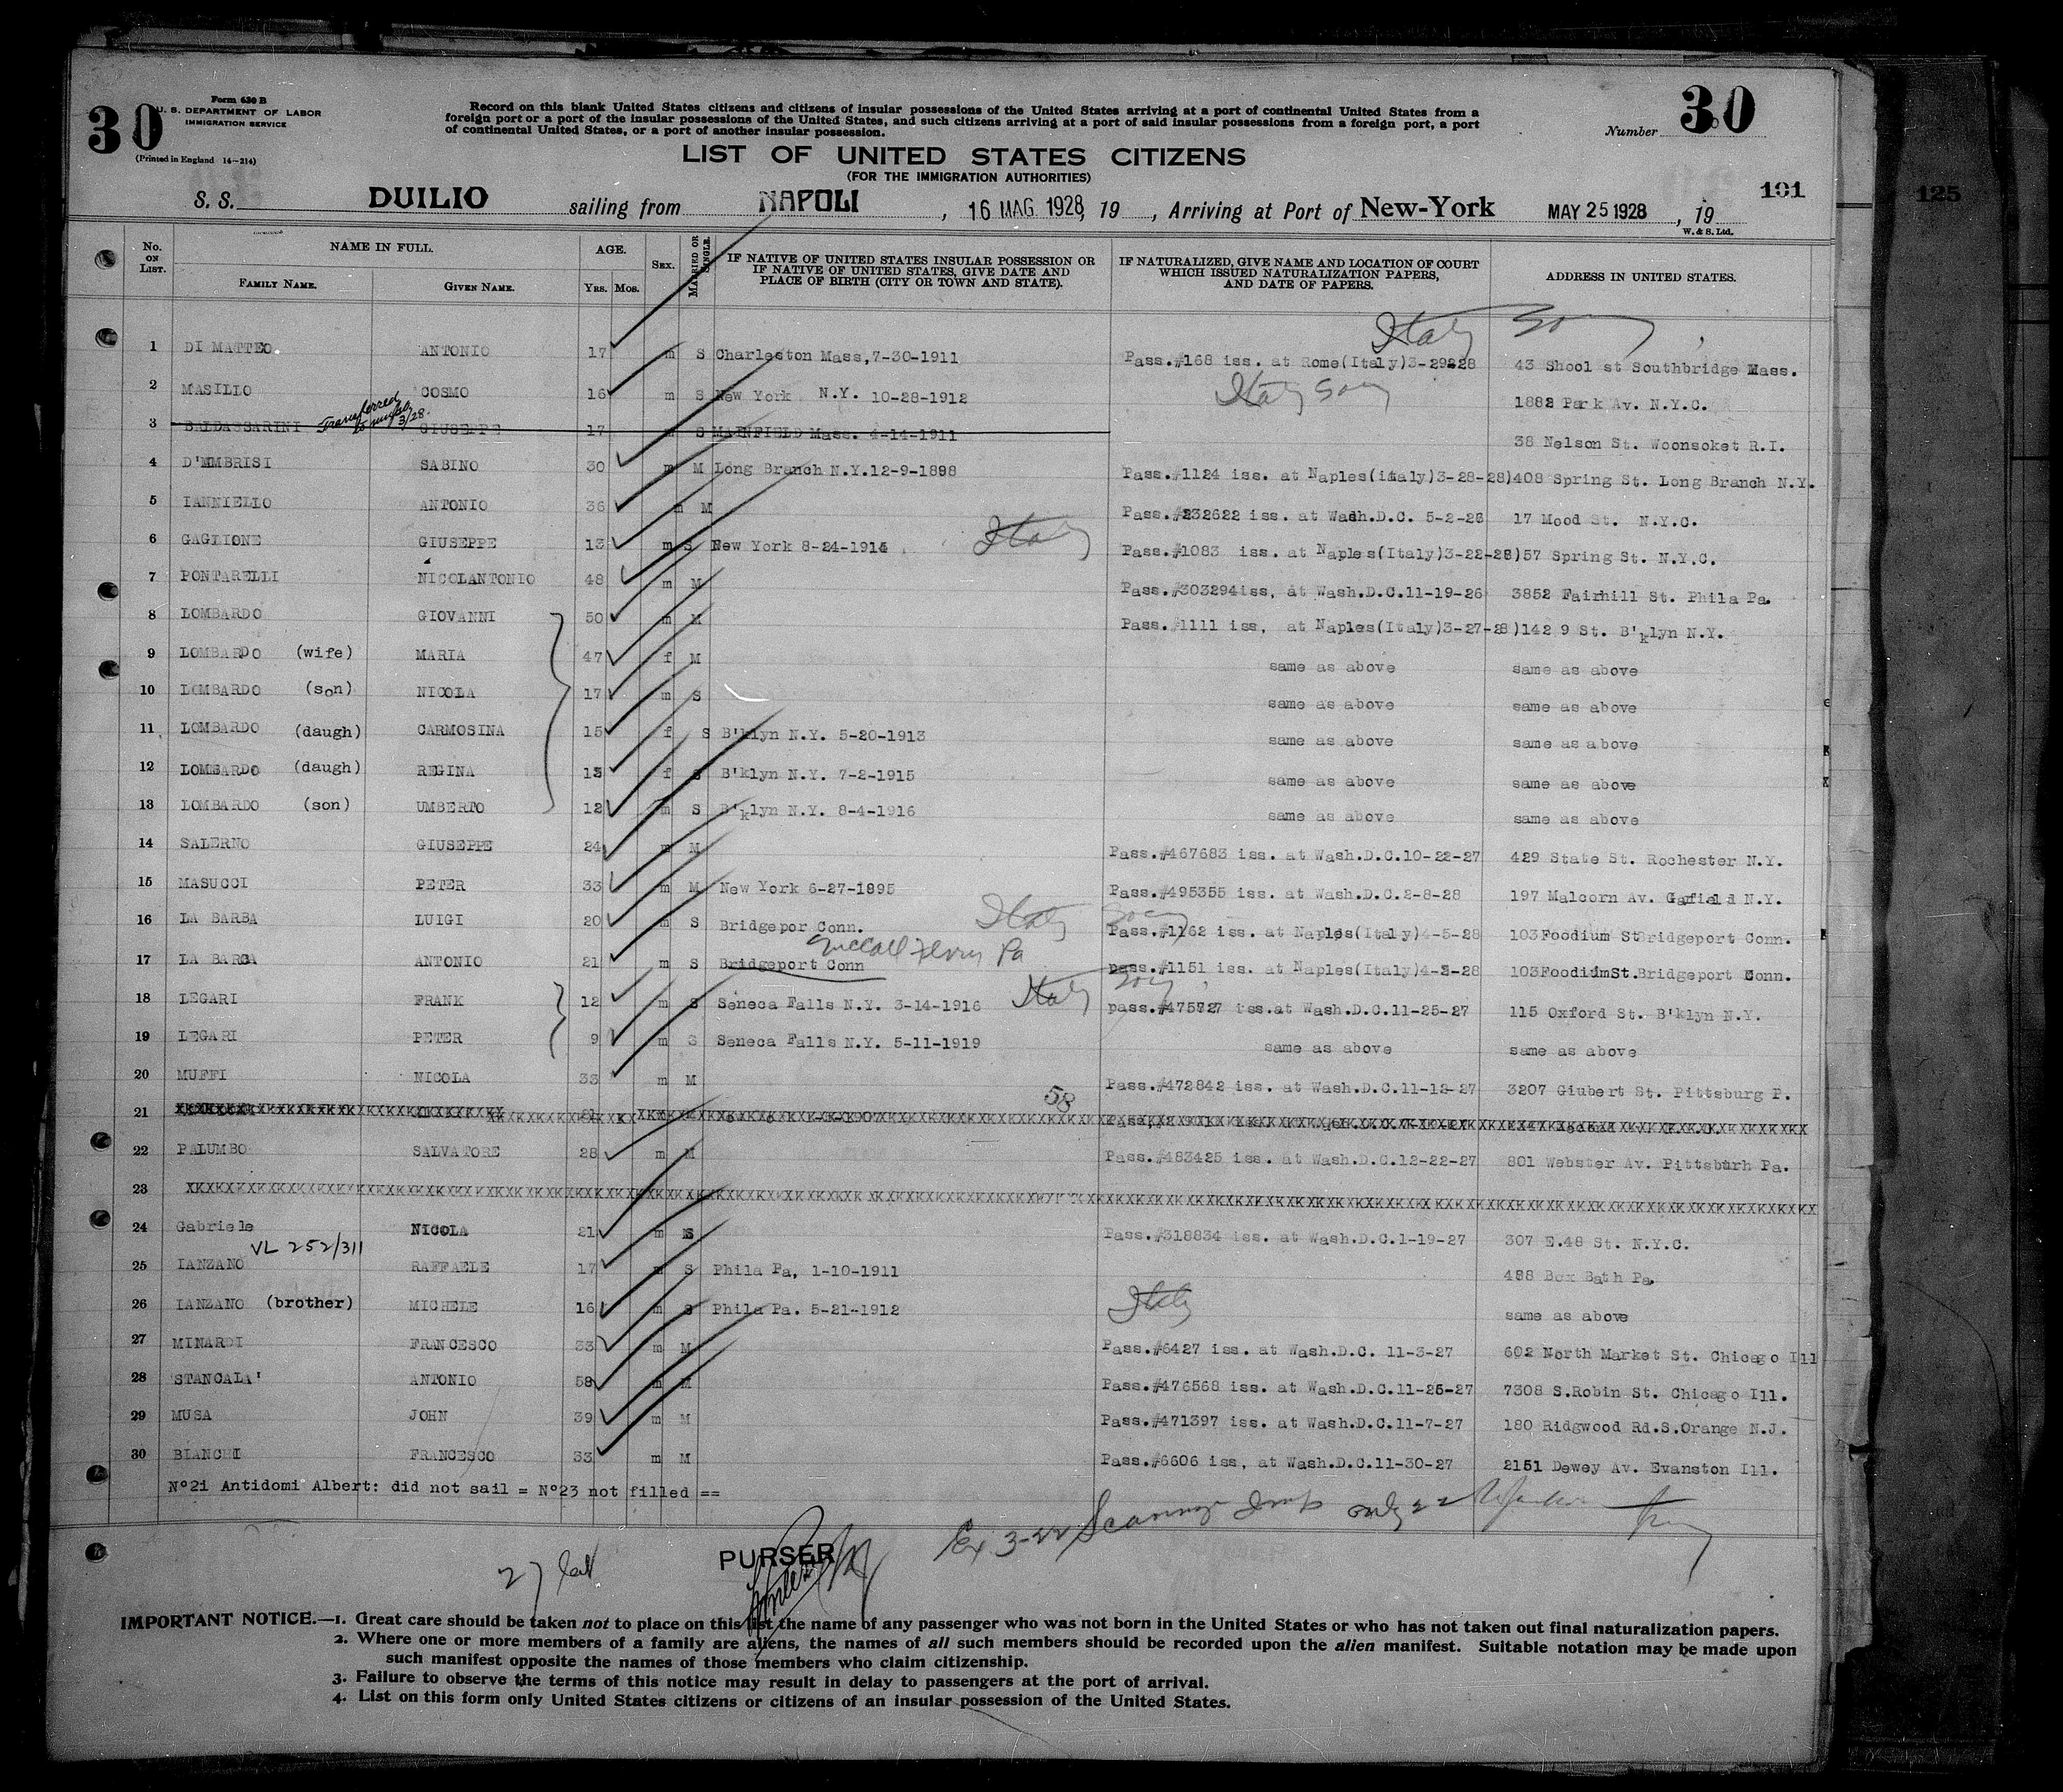 30
Form 630 B
U. S. DEPARTMENT OF LABOR
IMMIGRATION SERVICE
(Printed in England 14-214)
Record on this blank United States citizens and citizens of insular possessions of the United States arriving at a port of continental United States from a
foreign port or a port of the insular possessions of the United States, and such citizens arriving at a port of said insular possessions from a foreign port, a port
of continental United States, or a port of another insular possession.
Number 30
LIST OF UNITED STATES CITIZENS
(FOR THE IMMIGRATION AUTHORITIES)
101
125
S. S. DUILIO sailing from NAPOLI, 16 MAG. 1928, 19 , Arriving at Port of New-York MAY 25 1928, 19
W. & S. Ltd.
No. ON LIST. NAME IN FULL. FAMILY NAME. GIVEN NAME. AGE. YRS. MOS. SEX. MARRIED OR SINGLE. IF NATIVE OF UNITED STATES INSULAR POSSESSION OR IF NATIVE OF UNITED STATES, GIVE DATE AND PLACE OF BIRTH (CITY OR TOWN AND STATE). IF NATURALIZED, GIVE NAME AND LOCATION OF COURT WHICH ISSUED NATURALIZATION PAPERS, AND DATE OF PAPERS. ADDRESS IN UNITED STATES.
Italy
1 DI MATTEO ANTONIO 17 m S Charleston Mass,7-30-1911 Pass.#168 iss. at Rome(Italy)3-29-28 43 Shool st Southbridge Mass.
2 MASILLO COSMO 16 m S New York N.Y. 10-28-1912 Italy 1882 Park Av. N.Y.C.
Transferred 3/28.
3 BALDASSARINI GIUSEPPE 17 m S MAINFIELD Mass. 4-14-1911 38 Nelson St. Woonsoket R.I.
4 D'MMBRISI SABINO 30 m M Long Branch N.Y.12-9-1898 Pass.#1124 iss. at Naples(italy)3-28-28)408 Spring St. Long Branch N.Y.
5 IANNIELLO ANTONIO 36 m M Pass.#232622 iss. at Wash.D.C. 5-2-26 17 Mood St. N.Y.C.
6 GAGLIONE GIUSEPPE 13 m S New York 8-24-1914 Italy Pass.#1083 iss. at Naples(Italy)3-22-28)57 Spring St. N.Y.C.
7 PONTARELLI NICOLANTONIO 48 m M Pass.#303294iss, at Wash.D.C.11-19-26 3852 Fairhill St. Phila Pa.
8 LOMBARDO GIOVANNI 50 m M Pass.#1111 iss, at Naples(Italy)3-27-28)142 9 St. B'klyn N.Y.
9 LOMBARDO (wife) MARIA 47 f M same as above same as above
10 LOMBARDO (son) NICOLA 17 m S same as above same as above
11 LOMBARDO (daugh) CARMOSINA 15 f S B'klyn N.Y. 5-20-1913 same as above same as above
12 LOMBARDO (daugh) REGINA 13 f S B'klyn N.Y. 7-2-1915 same as above same as above
13 LOMBARDO (son) UMBERTO 12 m S B'klyn N.Y. 8-4-1916 same as above same as above
14 SALERNO GIUSEPPE 24 m M Pass.#467683 iss. at Wash.D.C.10-22-27 429 State St. Rochester N.Y.
15 MASUCCI PETER 33 m M New York 6-27-1895 Pass.#495355 iss. at Wash.D.C.2-8-28 197 Malcorn Av. Garfield N.Y.
16 LA BARBA LUIGI 20 m S Bridgepor Conn. Italy Pass.#1162 iss. at Naples(Italy)4-5-28 103Foodium St Bridgeport Conn.
Pa
17 LA BARBA ANTONIO 21 m S Bridgeport Conn pass.#1151 iss. at Naples(Italy)4-3-28 103FoodiumSt.Bridgeport Conn.
18 LEGARI FRANK 12 m S Seneca Falls N.Y. 3-14-1916 Italy pass.#475727 iss.at Wash.D.C.11-25-27 115 Oxford St. B'klyn N.Y.
19 LEGARI PETER 9 m S Seneca Falls N.Y. 5-11-1919 same as above same as above
20 MUFFI NICOLA 33 m M Pass.#472842 iss. at Wash.D.C.11-12-27 3207 Giubert St. Pittsburg P.
58
21
22 PALUMBO SALVATORE 28 m M Pass.#483425 iss. at Wash.D.C.12-22-27 801 Webster Av. Pittsburh Pa.
23
24 Gabriele NICOLA 21 m S Pass.#318834 iss. at Wash.D.C.1-19-27 307 E.48 St. N.Y.C.
VL 252/311
25 IANZANO RAFFAELE 17 m S Phila Pa, 1-10-1911 498 Box Bath Pa.
26 IANZANO (brother) MICHELE 16 m S Phila Pa. 5-21-1912 Italy same as above
27 MINARDI FRANCESCO 33 m M Pass.#6427 iss. at Wash.D.C. 11-3-27 602 North Market St. Chicago Ill
28 STANCALA' ANTONIO 58 m M Pass.#476568 iss. at Wash.D.C.11-25-27 7308 S.Robin St. Chicago Ill.
29 MUSA JOHN 39 m M Pass.#471397 iss. at Wash.D.C.11-7-27 180 Ridgwood Rd.S.Orange N.J.
30 BIANCHI FRANCESCO 33 m M Pass.#6606 iss, at Wash.D.C.11-30-27 2151 Dewey Av. Evanston Ill.
N°21 Antidomi Albert: did not sail = N°23 not filled ==
Ex 3-22 only 22
27
PURSER
IMPORTANT NOTICE.—1. Great care should be taken not to place on this list the name of any passenger who was not born in the United States or who has not taken out final naturalization papers.
2. Where one or more members of a family are aliens, the names of all such members should be recorded upon the alien manifest. Suitable notation may be made upon
such manifest opposite the names of those members who claim citizenship.
3. Failure to observe the terms of this notice may result in delay to passengers at the port of arrival.
4. List on this form only United States citizens or citizens of an insular possession of the United States.